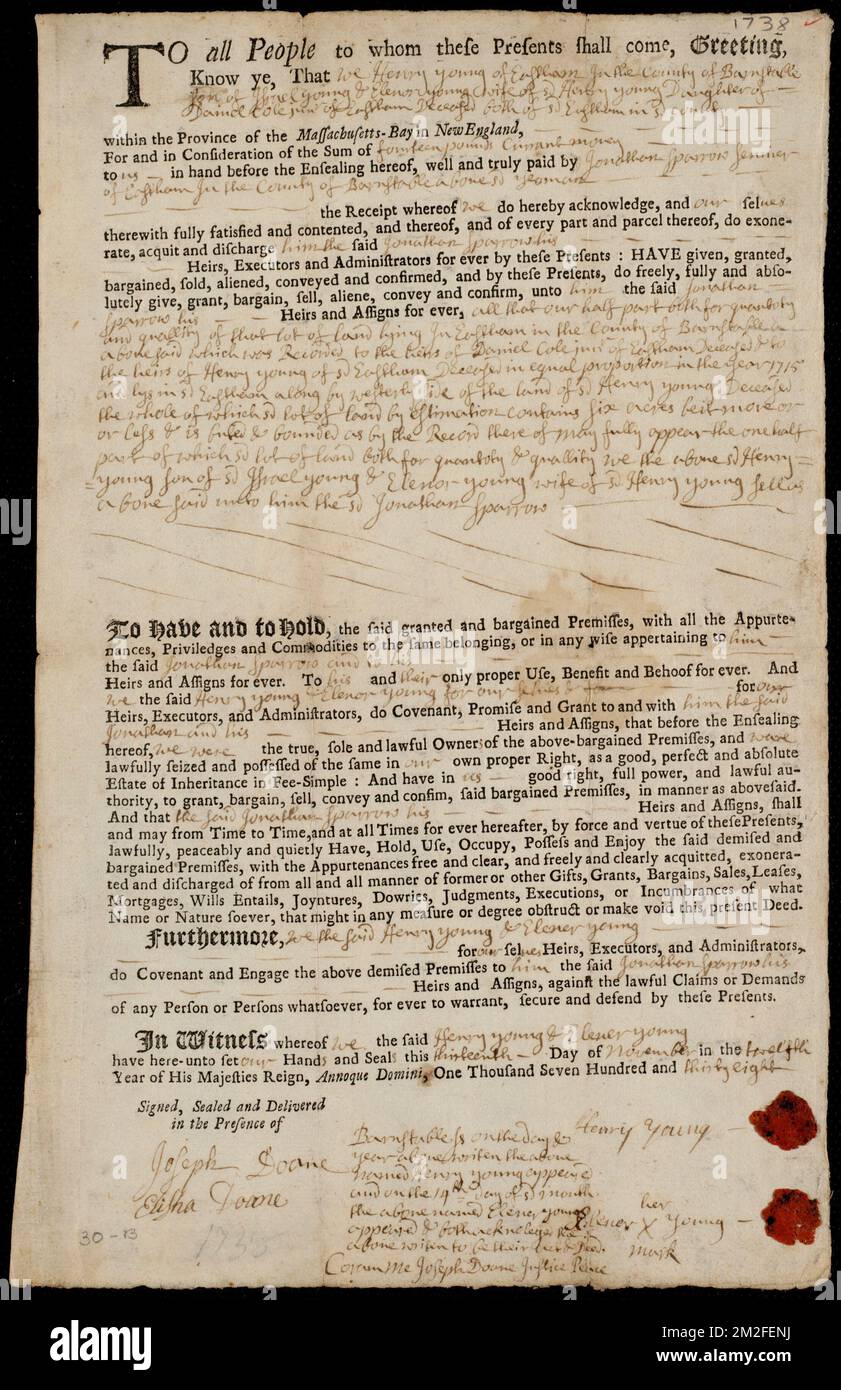 1738
TO all People to whom theſe Preſents ſhall come, Greeting,
Know ye, That we Henry young of Eaſtham In the County of Barnſtable
ſon of Iſrael young & Elenor young wife of sd Henry young Daughter of
Daniel Cole junr of Eaſtham Deceaſed both of sd Eaſtham in sd County
within the Province of the Maſſachuſetts-Bay in New England,
For and in Conſideration of the Sum of fourteen pounds Currant money
to us in hand before the Enſealing hereof, well and truly paid by Jonathan Sparrow
of Eaſtham In the County of Barnſtable aboue sd yeoman
the Receipt whereof we do hereby acknowledge, and our ſelves
therewith fully ſatisfied and contented, and thereof, and of every part and parcel thereof, do exone-
rate, acquit and diſcharge him the ſaid Jonathan Sparrow his
Heirs, Executors and Adminiſtrators for ever by theſe Preſents : HAVE given, granted,
bargained, ſold, aliened, conveyed and confirmed, and by theſe Preſents, do freely, fully and abſo-
lutely give, grant, bargain, ſell, aliene, convey and confirm, unto him the ſaid Jonathan
Sparrow his Heirs and Aſſigns for ever, all that our half part both for quantoty
and quallity of that lot of land lying In Eaſtham in the County of Barnſtable a
aboue said which was Recorded to the heirs of Daniel Cole junr of Eaſtham Deceaſed & to
the heirs of Henry young of sd Eaſtham Deceaſed in equal proportion in the year 1715
and lys in sd Eaſtham along by weſterly side of the land of sd Henry young Deceaſed
the whole of which sd lot of land by eſtimation contains six acres be it more or
or leſs & is & bounded as by the Record there of may fully appear the one half
part of which sd lot of land both for quantoty & quallity we the aboue sd Henry
young son of sd Iſrael young & Elenor young wife of sd Henry young sell as
aboue said unto him the sd Jonathan Sparrow
To Have and to Hold, the ſaid granted and bargained Premiſſes, with all the Appurte-
nances, Priviledges and Commodities to the ſame belonging, or in any wiſe appertaining to him
the ſaid Jonathan Sparrow and to his
Heirs and Aſſigns for ever. To his and their only proper Uſe, Benefit and Behoof for ever. And
we the ſaid Henry young & Elenor young for our selues & for our
Heirs, Executors, and Adminiſtrators, do Covenant, Promiſe and Grant to and with him the said
Jonathan and his Heirs and Aſſigns, that before the Enſealing
hereof, we were the true, ſole and lawful Owners of the above-bargained Premiſſes, and were
lawfully ſeized and poſſeſſed of the ſame in our own proper Right, as a good, perfect and abſolute
Eſtate of Inheritance in Fee-Simple : And have in us good right, full power, and lawful au-
thority, to grant, bargain, ſell, convey and confim, ſaid bargained Premiſſes, in manner as aboveſaid.
And that the said Jonathan Sparrow his Heirs and Aſſigns, ſhall
and may from Time to Time, and at all Times for ever hereafter, by force and vertue of theſe Preſents,
lawfully, peaceably and quietly Have, Hold, Uſe, Occupy, Poſſeſs and Enjoy the ſaid demiſed and
bargained Premiſſes, with the Appurtenances free and clear, and freely and clearly acquitted, exonera-
ted and diſcharged of from all and all manner of former or other Gifts, Grants, Bargains, Sales, Leaſes,
Mortgages, Wills Entails, Joyntures, Dowries, Judgments, Executions, or Incumbrances of what
Name or Nature ſoever, that might in any meaſure or degree obſtruct or make void this preſent Deed.
Furthermore, we the said Henry young & Elener young
for our ſelves Heirs, Executors, and Adminiſtrators,
do Covenant and Engage the above demiſed Premiſſes to him the ſaid Jonathan Sparrow his
Heirs and Aſſigns, againſt the lawful Claims or Demands
of any Perſon or Perſons whatſoever, for ever to warrant, ſecure and defend by theſe Preſents.
In Witneſs whereof we the ſaid Henry young & Elener young
have here-unto ſet our Hands and Seals this thirteenth Day of November in the twelfth
Year of His Majeſties Reign, Annoque Domini, One Thouſand Seven Hundred and thirty eight
Signed, Sealed and Delivered
in the Preſence of
Joseph Doane
Eliſha Doane
Barnſtable ss on the day &
year aboue writen the aboue
named Henry young appeared
and on the 14th day of sd month
the aboue named Elener young
appeared & both the
aboue writen to be their Deed.
Coram Me Joseph Doane Juſtice Peace
Henry Young
her
Elener X Young
mark
30-13
alamy
Image ID: 2M2FENJ
www.alamy.com